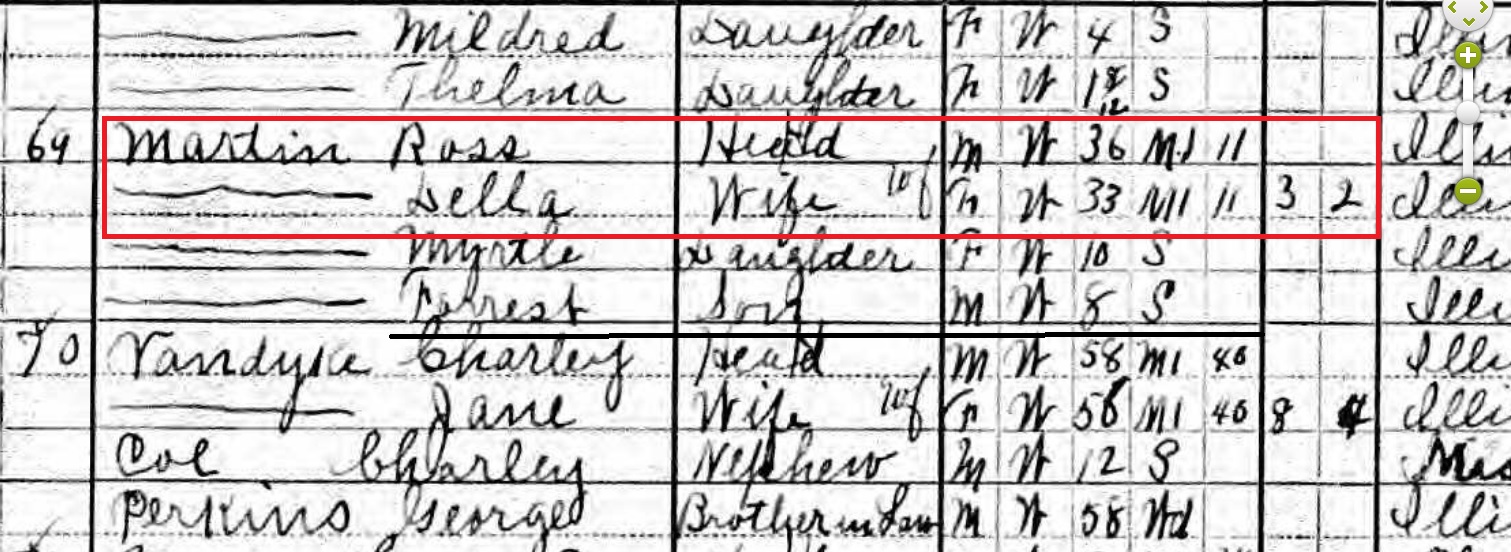 Mildred Daughter F W 4 S Illi
Thelma Daughter F W 1 8/12 S Illi
69 Martin Ross Head M W 36 M1 11 Illi
Della Wife F W 33 M1 11 3 2 Illi
Myrtle Daughter F W 10 S Illi
Forrest Son M W 8 S Illi
70 Vandyke Charley Head M W 58 M1 40 Illi
Jane Wife F W 58 M1 40 8 4 Illi
Coe Charley Nephew M W 12 S
Perkins George Brother in Law M W 58 Wd Illi